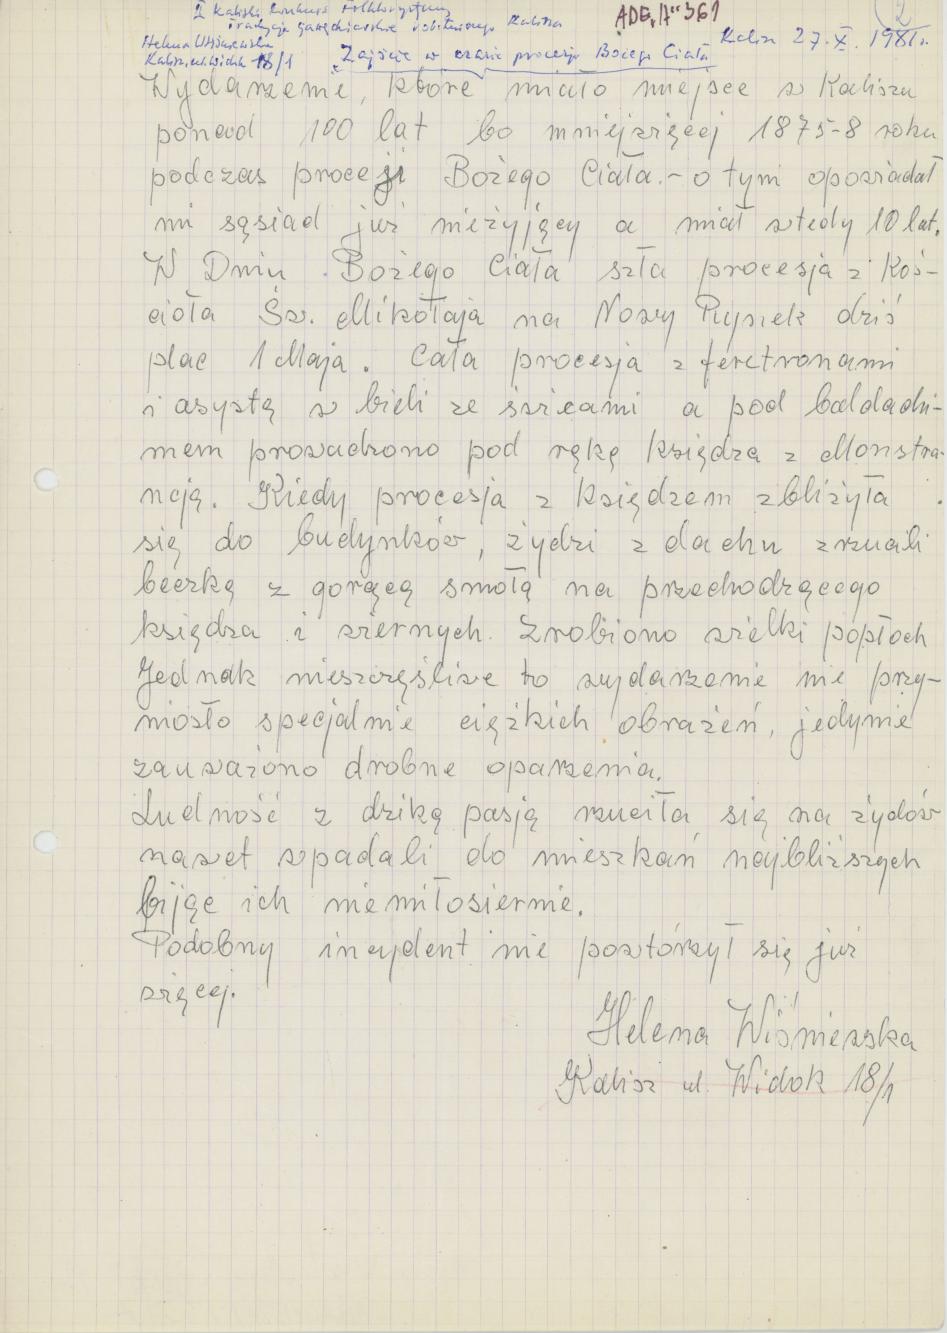 I Kaliski Konkurs Folklorystyczny
Tradycje gawędziarskie robotniczego Kalisza
ADE "A" 361
2
Kalisz 27. X. 1981r.
Helena Wiśniewska
Kalisz, ul. Widok 18/1
"Zajście w czasie procesji Bożego Ciała
Wydarzenie, które miało miejsce w Kaliszu
ponad 100 lat bo mniejwięcej 1875-8 roku
podczas procesji Bożego Ciała. - o tym opowiadał
mi sąsiad już nieżyjący a miał wtedy 10 lat.
W Dniu Bożego Ciała szła procesja z Koś-
cioła Św. Mikołaja na Nowy Rynek dziś
plac 1 Maja. Cała procesja z feretronami
i asystą w bieli ze świecami a pod baldachi-
mem prowadzono pod rękę księdza z Monstra-
ncją. Kiedy procesja z księdzem zbliżyła
się do budynków, żydzi z dachu zrzucili
beczkę z gorącą smołą na przechodzącego
księdza i wiernych. Zrobiono wielki popłoch
Jednak nieszczęśliwe to wydarzenie nie przy-
niosło specjalnie ciężkich obrażeń, jedynie
zauważono drobne oparzenia.
Ludność z dziką pasją rzuciła się na żydów
nawet wpadali do mieszkań najbliższych
bijąc ich niemiłosiernie.
Podobny incydent nie powtórzył się już
więcej.
Helena Wiśniewska
Kalisz ul. Widok 18/1